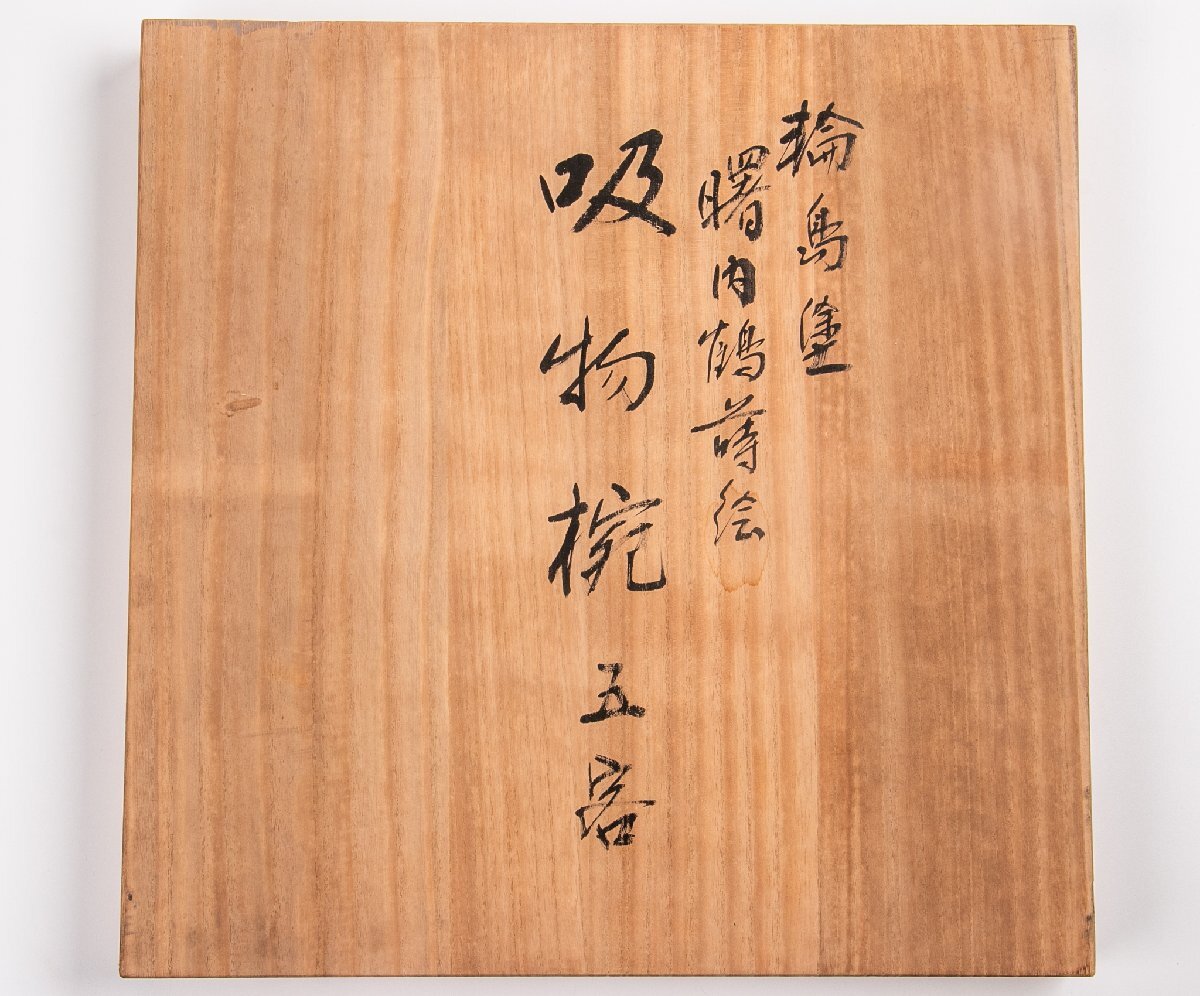 輪島塗
曙内鶴蒔絵
吸物椀五客